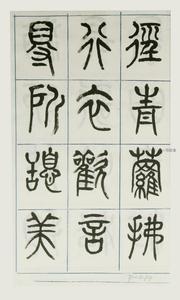 徑青蘿拂
行衣歡言
得所憩美